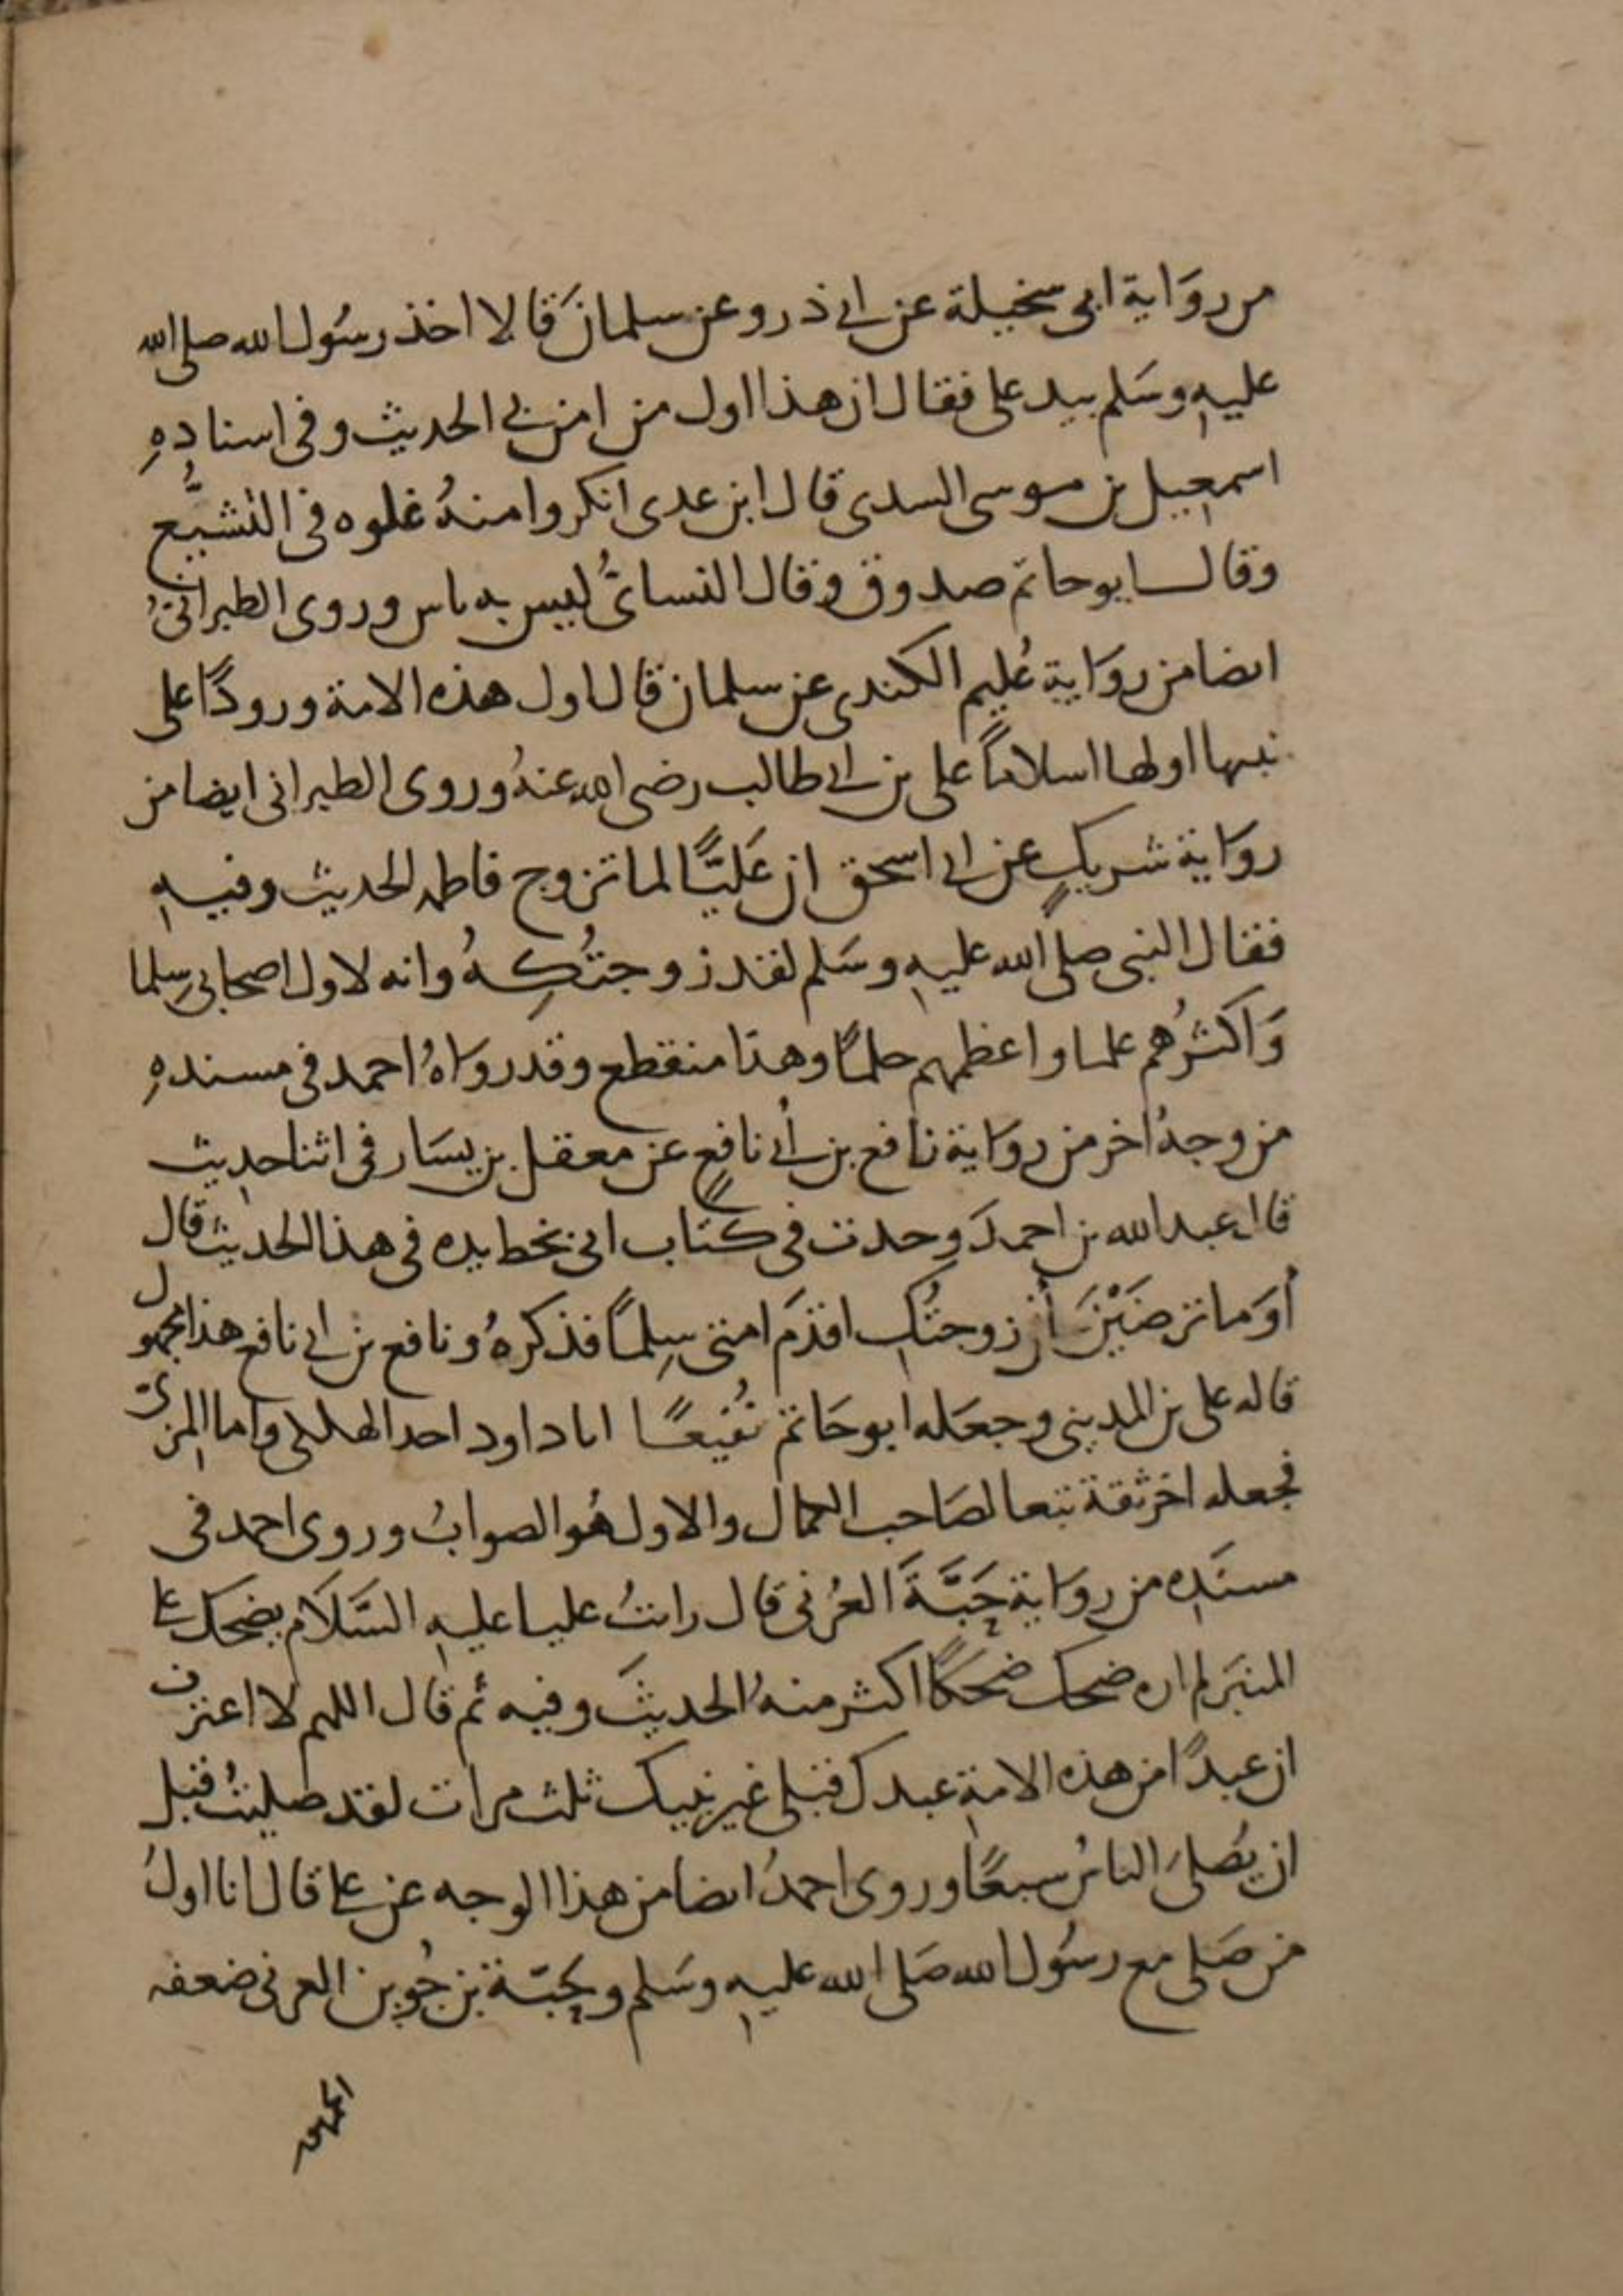 من روَاية ابى سخيلة عن ابى ذر وعن سلمانَ قالا اخذ رسُول الله صلى الله
عليهِ وسَلم بيد على فقال ان هذا اول من امن بى الحديث وفى اسنادهِ
اسمعيل بن موسى السدى قال ابن عدى انكروا منهُ غلوه فى التشيُّع
وقال ابو حاتم صدوق وقال النسائىُّ ليس به باس وروى الطبرانىُّ
ايضا من روَاية عُليم الكندى عن سلمان قال اول هذه الامة ورودًا على
نبيها اولها اسلامًا على بن ابى طالب رضى الله عنهُ وروى الطبرانى ايضا من
روَاية شريكٍ عن ابى اسحق ان عَليًّا لما تزوج فاطمه الحديث وفيهِ
فقال النبى صلى الله عليهِ وسَلم لقد زوجتُكِهُ وانه لاول اصحابى سِلما
وَاكثرُهم علما واعظمهم حلمًا وهذا منقطع وقد روَاهُ احمد فى مسندهِ
من وجهُ اخر من روَاية نافع بن أبى نافعٍ عن معقل بن يسَار فى اثنا حديث
قال عبد الله بن احمد وجدت فى كتاب ابى بخط يده فى هذا الحديث قال
أوَ ما ترضَيْنَ أن زوجتُكِ اقدَم امتى سِلمًا فذكرهُ ونافع بن ابى نافع هذا مجهول
قاله على بن المدينى وجعَله ابو حَاتم نُفيعًا ابا داود احد الهلكى واما المزىّ
فجعله اخر ثقة تبعا لصَاحب الكمال والاول هُو الصوابُ وروى احمد فى
مسنَدِه من روَاية حَبَّةَ العُرنى قال رايتُ عليا عليهِ السَّلَام يضحك على
المنبَر لم اره ضحك ضحكًا اكثر منهُ الحديثَ وفيه ثم قال اللهم لا اعترف
ان عبدًا من هذه الامةِ عبدك قبلى غير نبيك ثلث مرات لقد صليتُ قبل
ان يُصلىَ الناسُ سبعًا وروى احمدُ ايضا من هذا الوجه عن على قال انا اولُ
من صَلى مع رسُول الله صَلى الله عليهِ وسَلم وحَبّة بن جُوين العرنى ضعفه
الجمهور